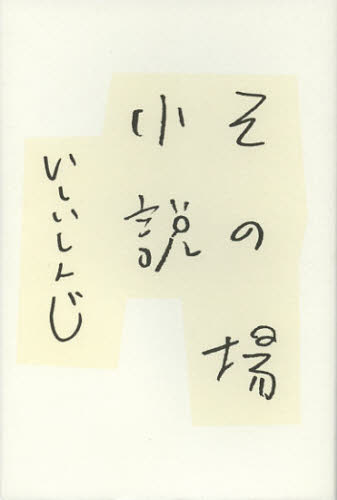 その場
小説
いしいしんじ